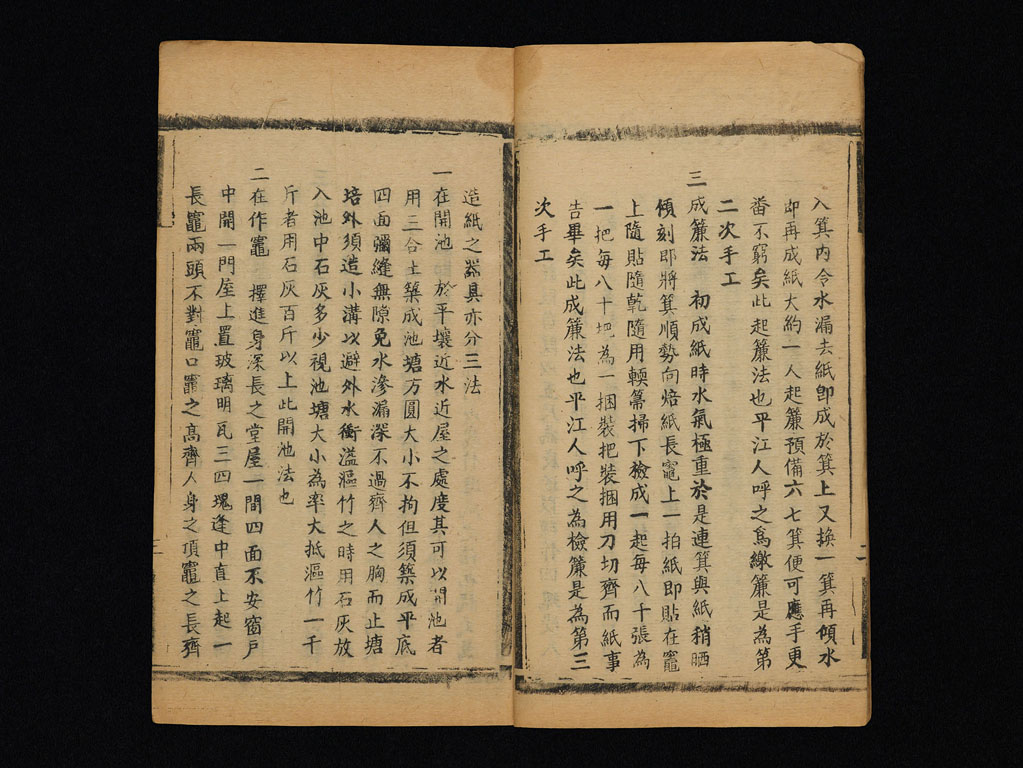 入箕內令水漏去紙卽成於箕上又換一箕再傾水
卽再成紙大約一人起簾預備六七箕便可應手更
畨不窮矣此起簾法也平江人呼之爲繳簾是為第
二次手工
三成簾法 初成紙時水氣極重於是連箕與紙稍晒
傾刻即將箕順勢向焙紙長竈上一拍紙即貼在竈
上隨貼隨乾隨用輭箒掃下檢成一起每八十張為
一把每八十把為一捆裝把裝捆用刀切齊而紙事
告畢矣此成簾法也平江人呼之為檢簾是為第三
次手工
造紙之器具亦分三法
一在開池 於平壤近水近屋之處度其可以開池者
用三合土築成池塘方圓大小不拘但須築成平底
四面彌縫無隙免水滲漏深不過齊人之胸而止塘
培外須造小溝以避外水衝溢漚竹之時用石灰放
入池中石灰多少視池塘大小為率大抵漚竹一千
斤者用石灰百斤以上此開池法也
二在作竈 擇進身深長之堂屋一間四面不安窗戶
中開一門屋上置玻璃明瓦三四塊逢中直上起一
長竈兩頭不對竈口竈之高齊人身之頂竈之長齊